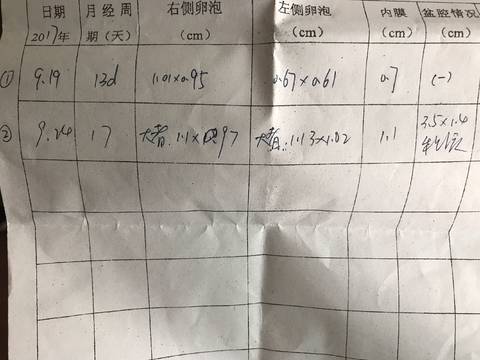 日期 月经周 右侧卵泡 左侧卵泡 内膜 盆腔情况
2017年 期（天） （cm） （cm） （cm） （cm）
① 9.19 13d 1.01×0.95 0.67×0.61 0.7 (-)
② 9.24 17 大者:1.1×0.97 大者:1.13×1.02 1.1 3.5×1.4